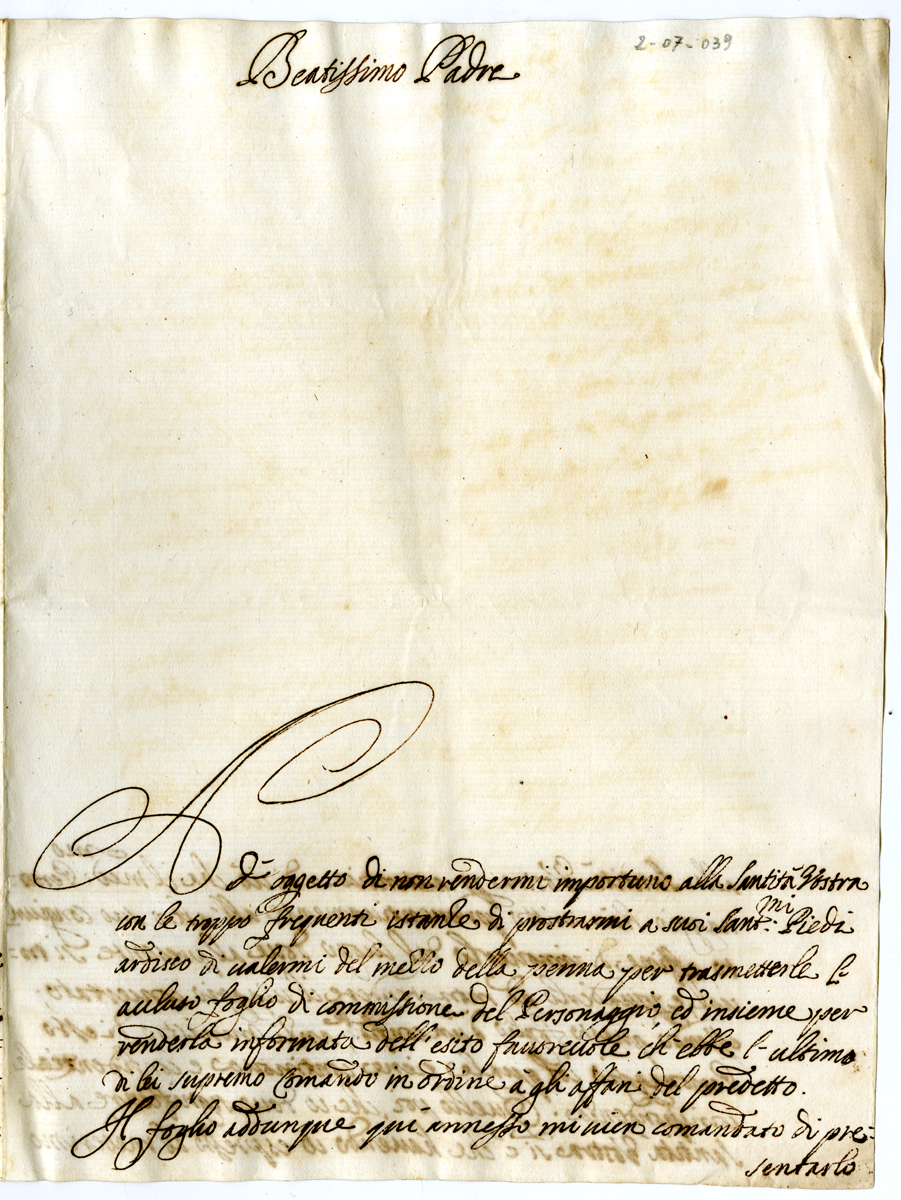 2-07-039
Beatissimo Padre
Ad' oggetto di non rendermi importuno alla Santità Vostra
con le troppo frequenti istanze di prostrarmi a suoi Sant.mi Piedi
ardisco di valermi del mezzo della penna per trasmetterle l'
accluso foglio di commissione del Personaggio, ed insieme per
renderla informata dell'esito favorevole, ch'ebbe l'ultimo
di lei supremo Comando in ordine à gli affari del predetto.
Il foglio addunque quì annesso mi vien comandato di pre=
sentarlo